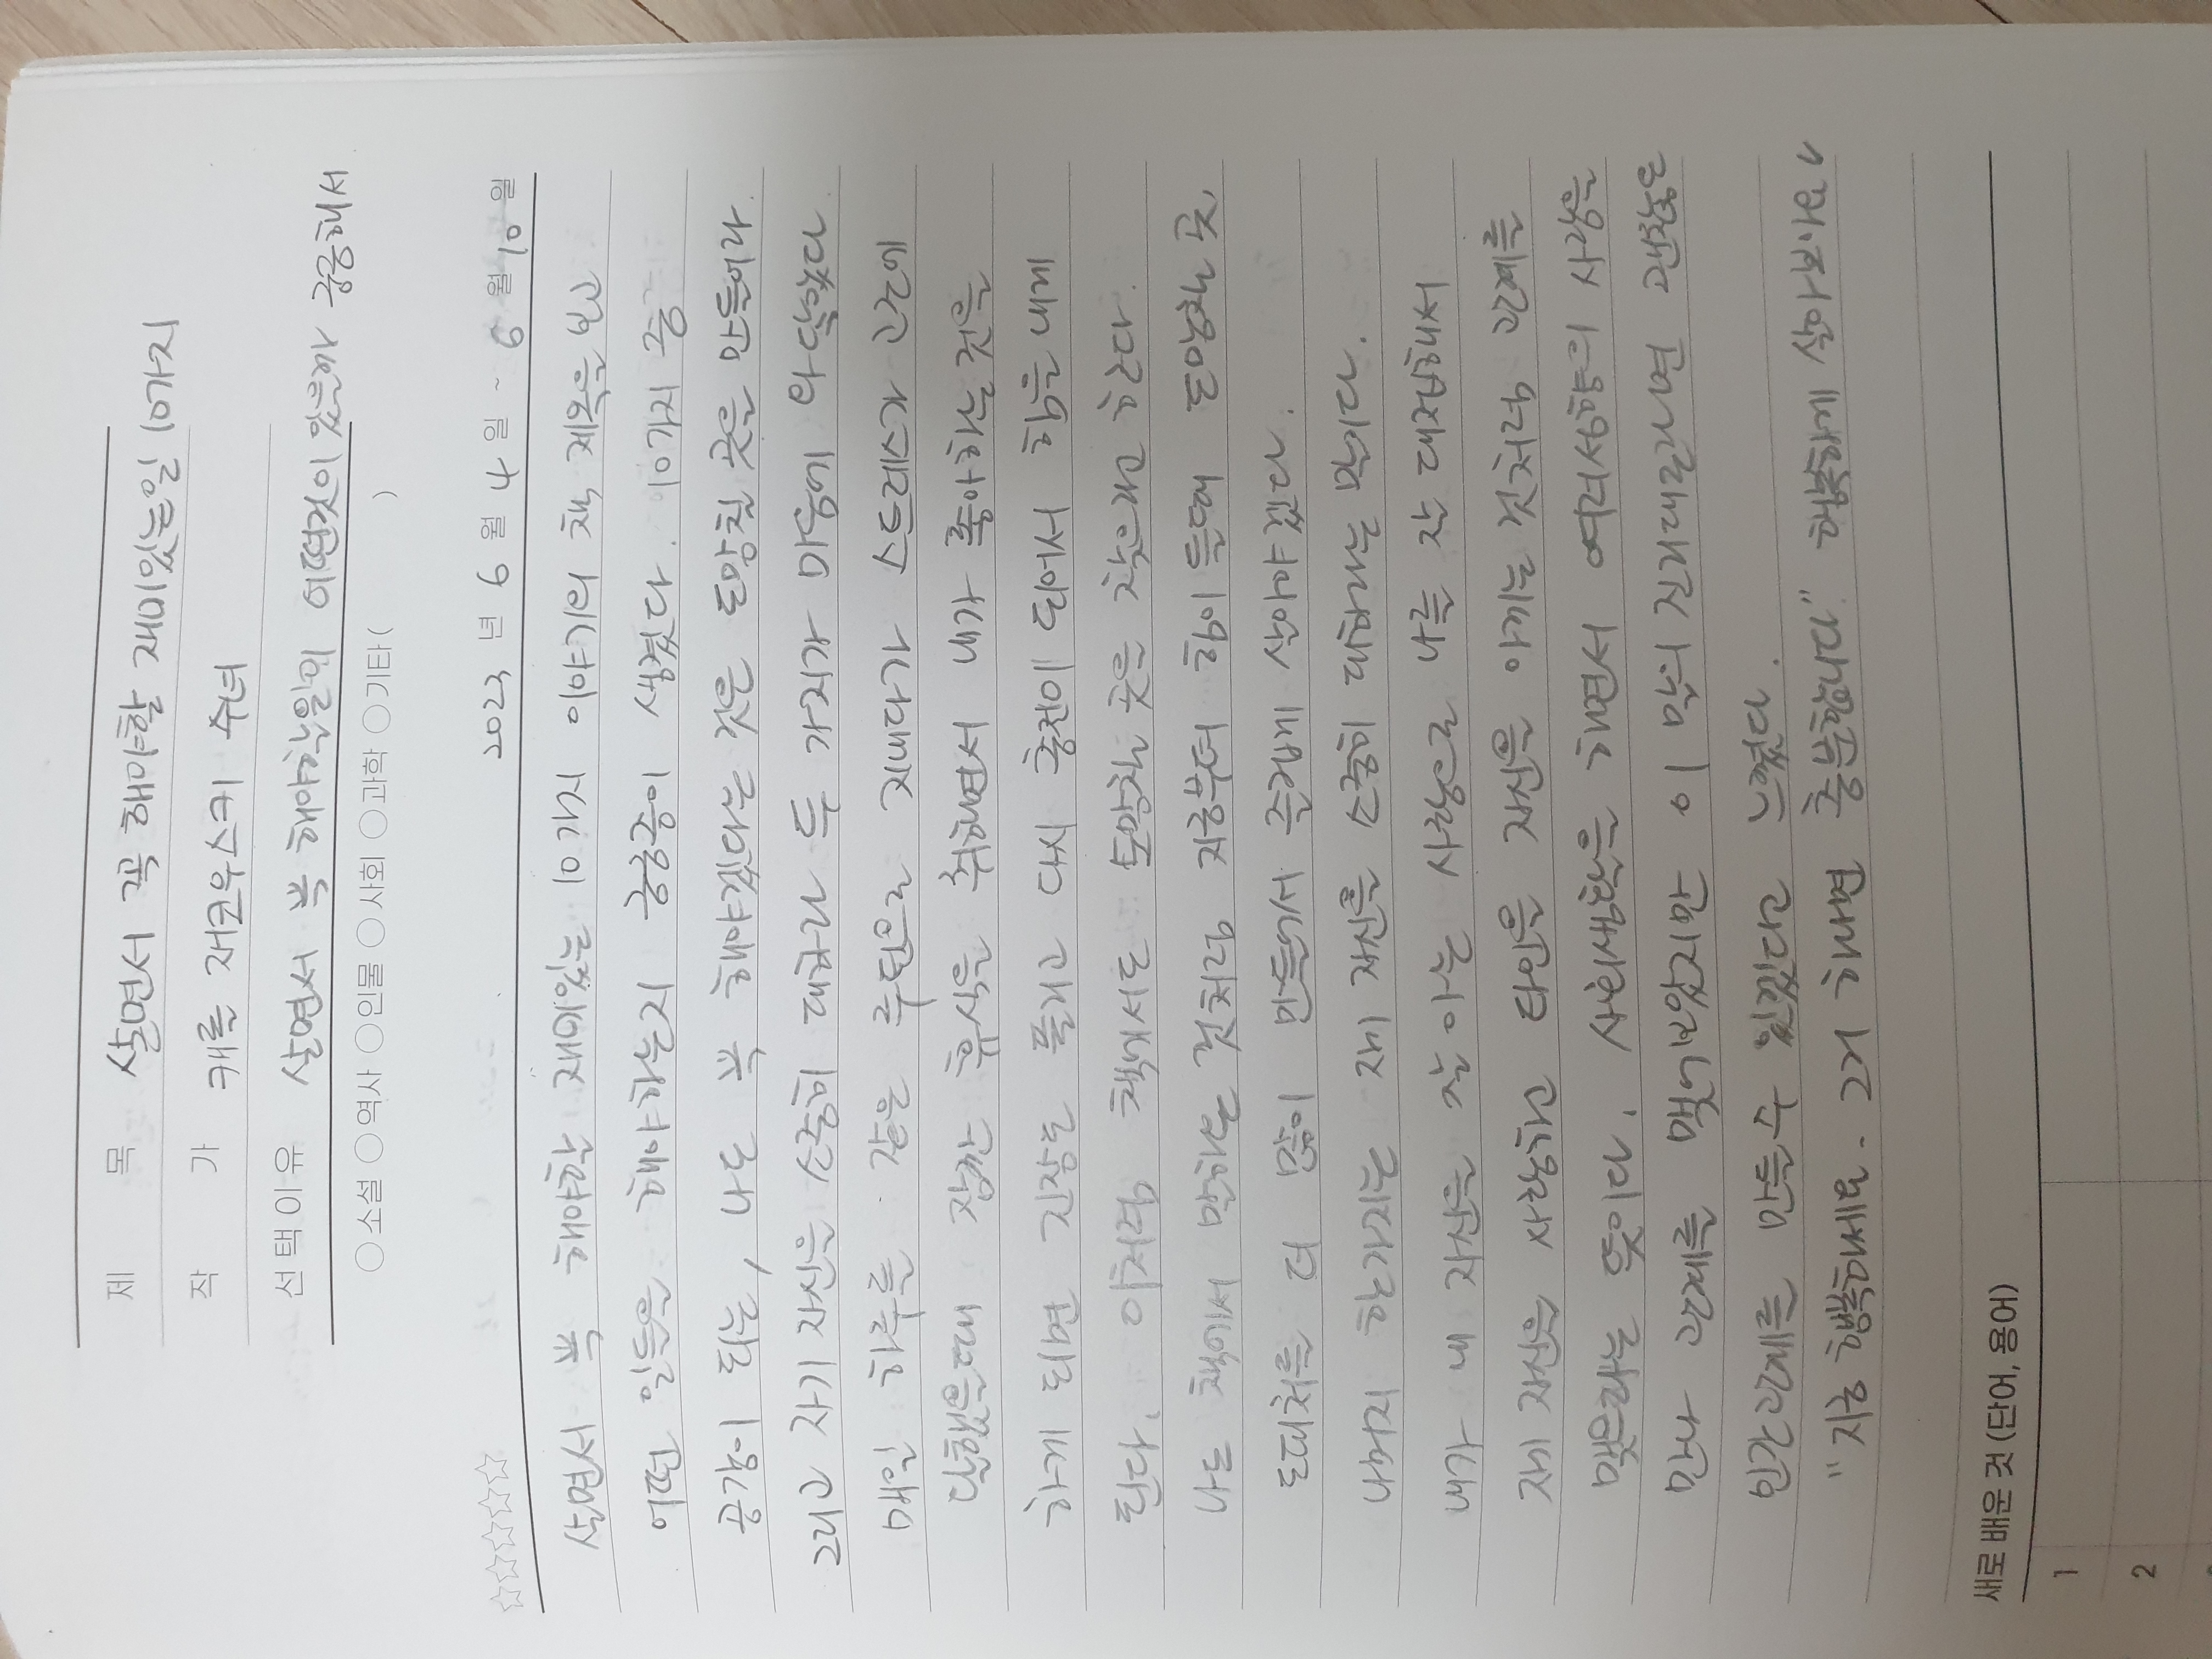 제 목 살면서 꼭 해야할 재미있는일 10가지
작 가 캐롤 재코우스키 수녀
선택이유 살면서 꼭 해야할일이 어떤것이 있을까 궁금해서
○소설 ○역사 ○인물 ○사회 ○과학 ○기타( )
☆☆☆☆☆ 2023 년 6 월 4 일 ~ 6 월 10 일
살면서 꼭 해야할 재미있는 10가지 이야기의 책 제목을 보고
어떤 일들을 해야하는지 궁금증이 생겼다. 10가지 중
공감이 되는, 나도 꼭 해야겠다는 것은 도망칠 곳을 만들어라.
그리고 자기 자신을 소중히 대하라 두 가지가 마음에 와 닿았다
매일 하루를 같은 루틴으로 지내다가 스트레스가 고조에
달했을때 잠깐 휴식을 취하면서 내가 좋아하는 것을
하게 되면 긴장도 풀리고 다시 충전이 되어서 힘을 내게
된다. 이처럼 책에서도 도망칠 곳을 찾으라고 한다.
나도 책에서 말하는 것처럼 지금부터 힘이 들때 도망칠 곳,
도피처를 더 많이 만들어서 즐겁게 살아야겠다.
나머지 한가지는 자기 자신을 소중히 대하라는 말이다.
내가 내 자신을 잘 아는 사람으로 나를 잘 대접해서
자기 자신을 사랑하고 타인을 자신을 아끼는 것처럼 관계를
맺으라는 뜻이다. 사회생활을 하면서 여러성향의 사람을
만나 관계를 맺어보았지만 이 말의 진리대로라면 괜찮은
인간관계를 만들수 있겠다고 느꼈다.
"지금 행복하세요. 그거 하나면 충분합니다" 행복하게 살아보아요
새로 배운 것 (단어, 용어)
1
2